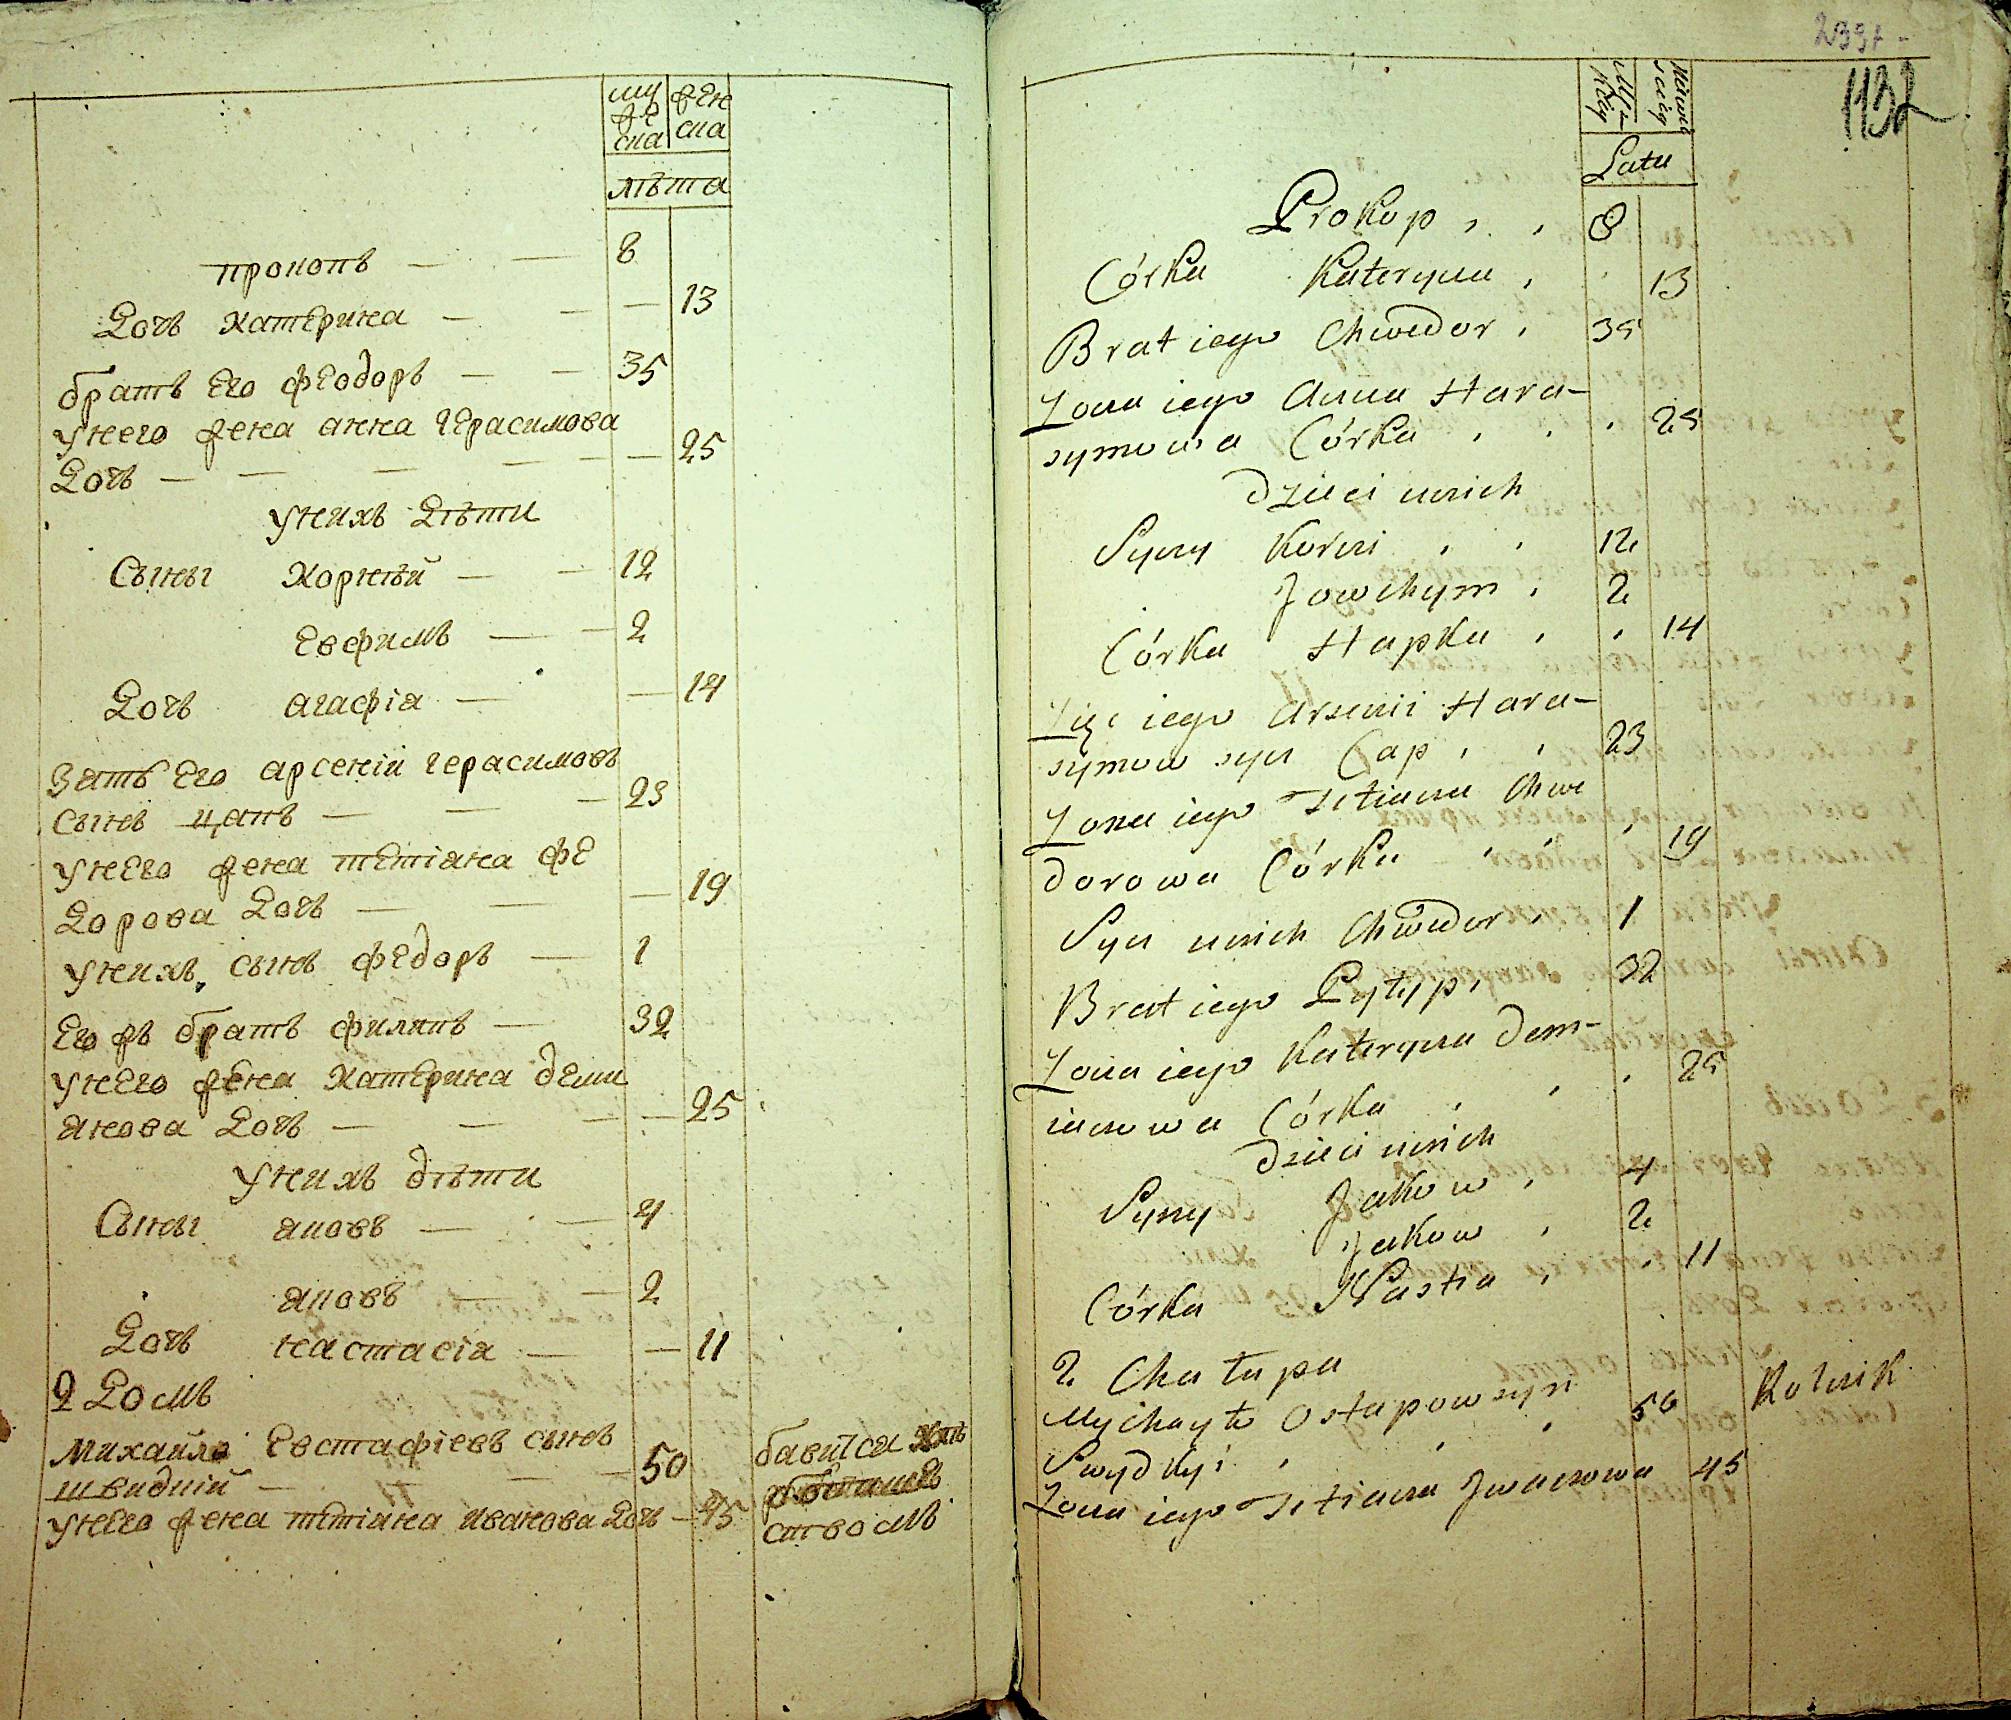 муже ска
жен ска
лѣта
прокопъ — — 8
Дочъ Катерина — — — 13
братъ Его феодоръ — — 35
унего жена анна герасимова
Дочъ — — — — — — 25
унихъ Дѣти
Сыны Корнѣй — — 12
Евфимъ — — 2
Дочъ агафіа — — 14
Зать Его арсеній герасимовъ
Сынъ цапъ — — — 23
унЕго жена тетіана фе
Дорова Дочъ — — — 19
унихъ сынъ федоръ — 1
Его жъ братъ филипъ — 32
унЕго жена Катерина деми
анова Дочъ — — — — 25
унихъ дѣти
Сыны яковъ — — 4
яковъ — — 2
Дочъ настасіа — — 11
2 Домъ
Михайло Евстафіевъ сынъ
швидкій — — — 50
унЕго жена тетіана иванова Дочъ — 45
бавится
ством
2397 -
1132
Męzka
Latu
Prokop , , 8
Córka Kateryna , . 13
Brat iego Chwedor , 35
Zona iego Anna Hara-
symowa Córka , , , 25
dzieci unich
Syny Korni , , 12
Jowchym , 2
Córka Hapka , , 14
Zięć iego Arsenii Hara-
symow syn Cap , , 23
Zona iego Tetiana Chwe
dorowa Córka , , , 19
Syn unich Chwedor , 1
Brat iego Pyłyp , 32
Zona iego Kateryna Dem-
ianowa Córka , , , 25
dzieci unich
Syny Jakow , 4
Jakow , 2
Córka Nastia , , 11
2 Chałupa
Mychayło Ostapow syn
Swydkyi , , , 50
Rolnik
Zona iego Tetiana Jwanowa 45